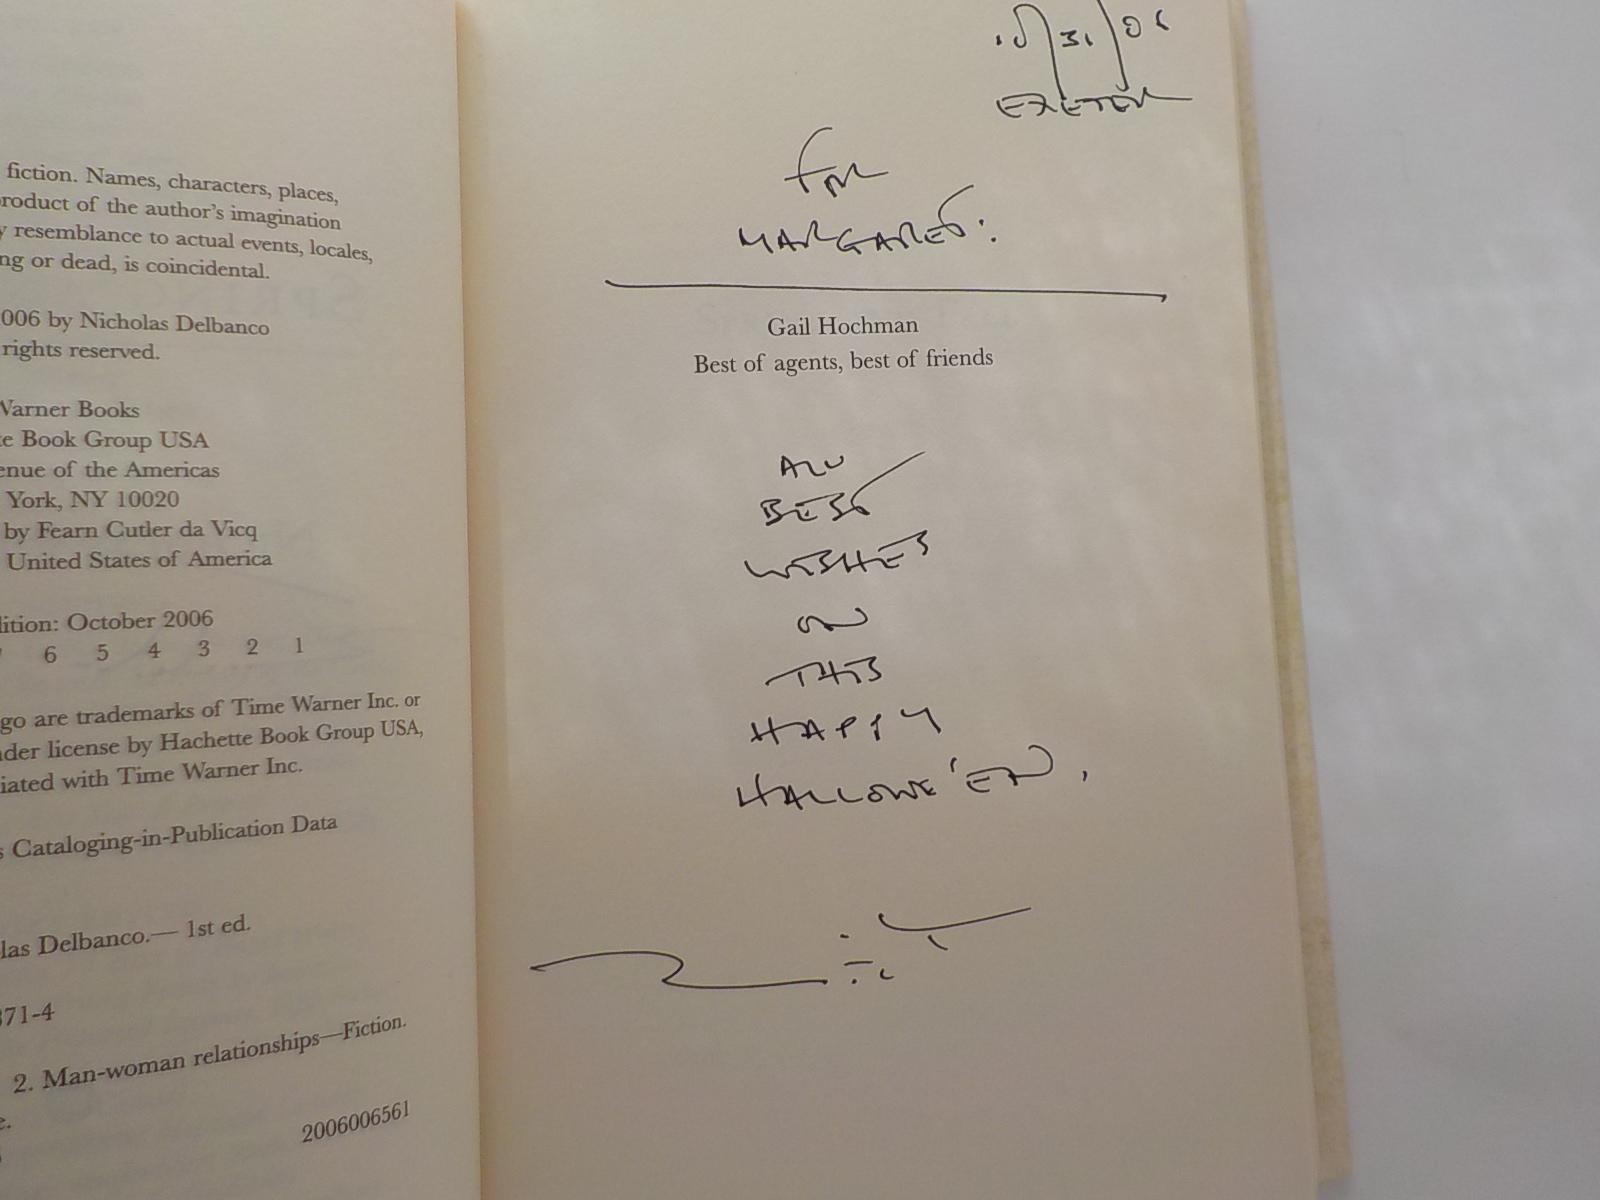 fiction. Names, characters, places,
roduct of the author's imagination
y resemblance to actual events, locales,
ng or dead, is coincidental.
006 by Nicholas Delbanco
rights reserved.
Warner Books
te Book Group USA
enue of the Americas
York, NY 10020
by Fearn Cutler da Vicq
United States of America
dition: October 2006
6 5 4 3 2 1
go are trademarks of Time Warner Inc. or
nder license by Hachette Book Group USA,
iated with Time Warner Inc.
s Cataloging-in-Publication Data
las Delbanco.— 1st ed.
371-4
2. Man-woman relationships—Fiction.
e.
2006006561
10/31/06
EXETER
FOR
MARGARET:
Gail Hochman
Best of agents, best of friends
ALL
BEST
WISHES
ON
THIS
HAPPY
HALLOWE'EN,